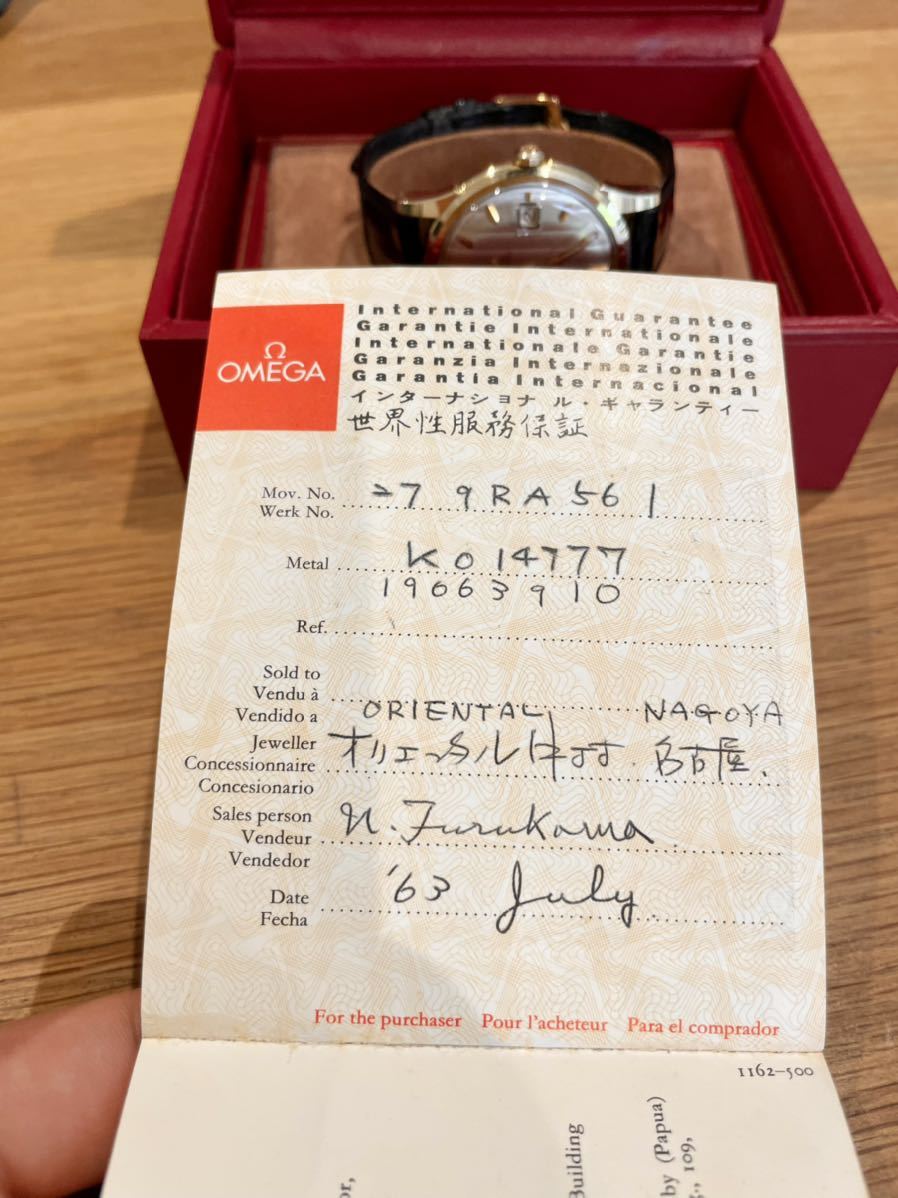 Ω
OMEGA
International Guarantee
Garantie Internationale
Internationale Garantie
Garanzia Internazionale
Garantía Internacional
インターナショナル・ギャランティー
世界性服務保証
Mov. No.
Werk No.
79RA561
Metal
KO14777
19663910
Ref.
Sold to
Vendu à
Vendido a
ORIENTAL NAGOYA
Jeweller
Concessionnaire
Concesionario
名古屋.
Sales person
Vendeur
Vendedor
N. Furukawa
Date
Fecha
'63 July
For the purchaser Pour l'acheteur Para el comprador
1162-500
or,
Building
by (Papua)
109,